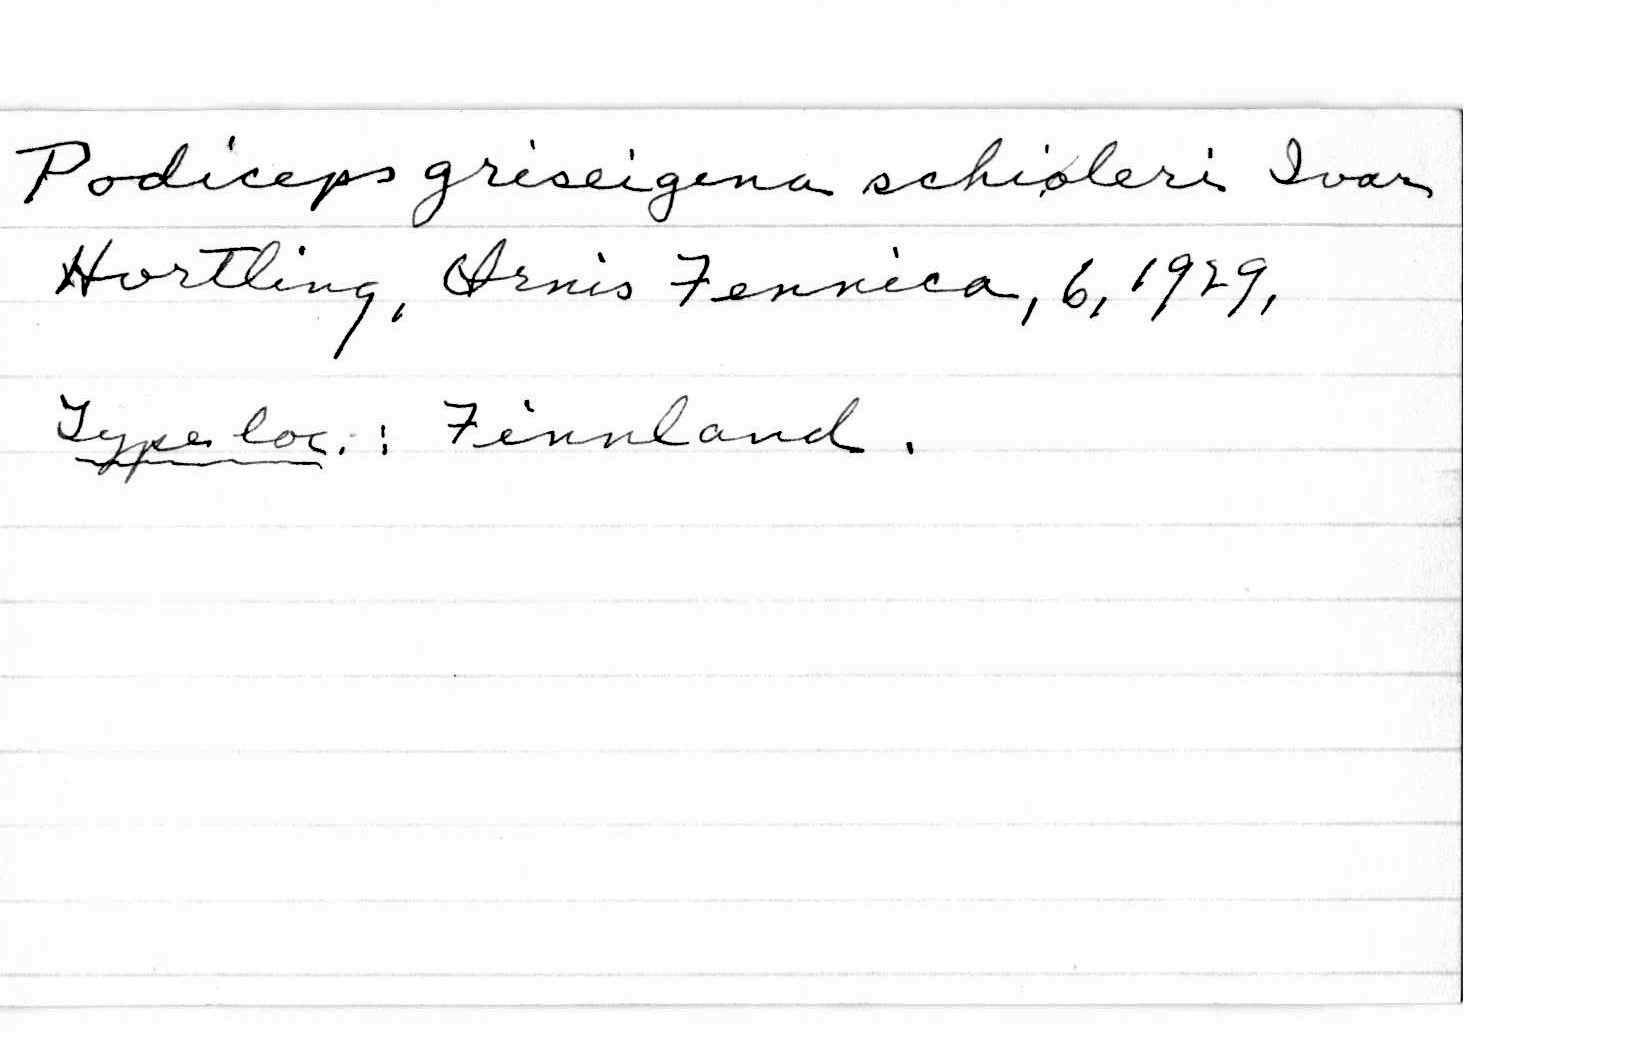 Podiceps griseigena schiøleri Ivar
Hortling, Ornis Fennica, 6, 1929,
Type loc.: Finnland.